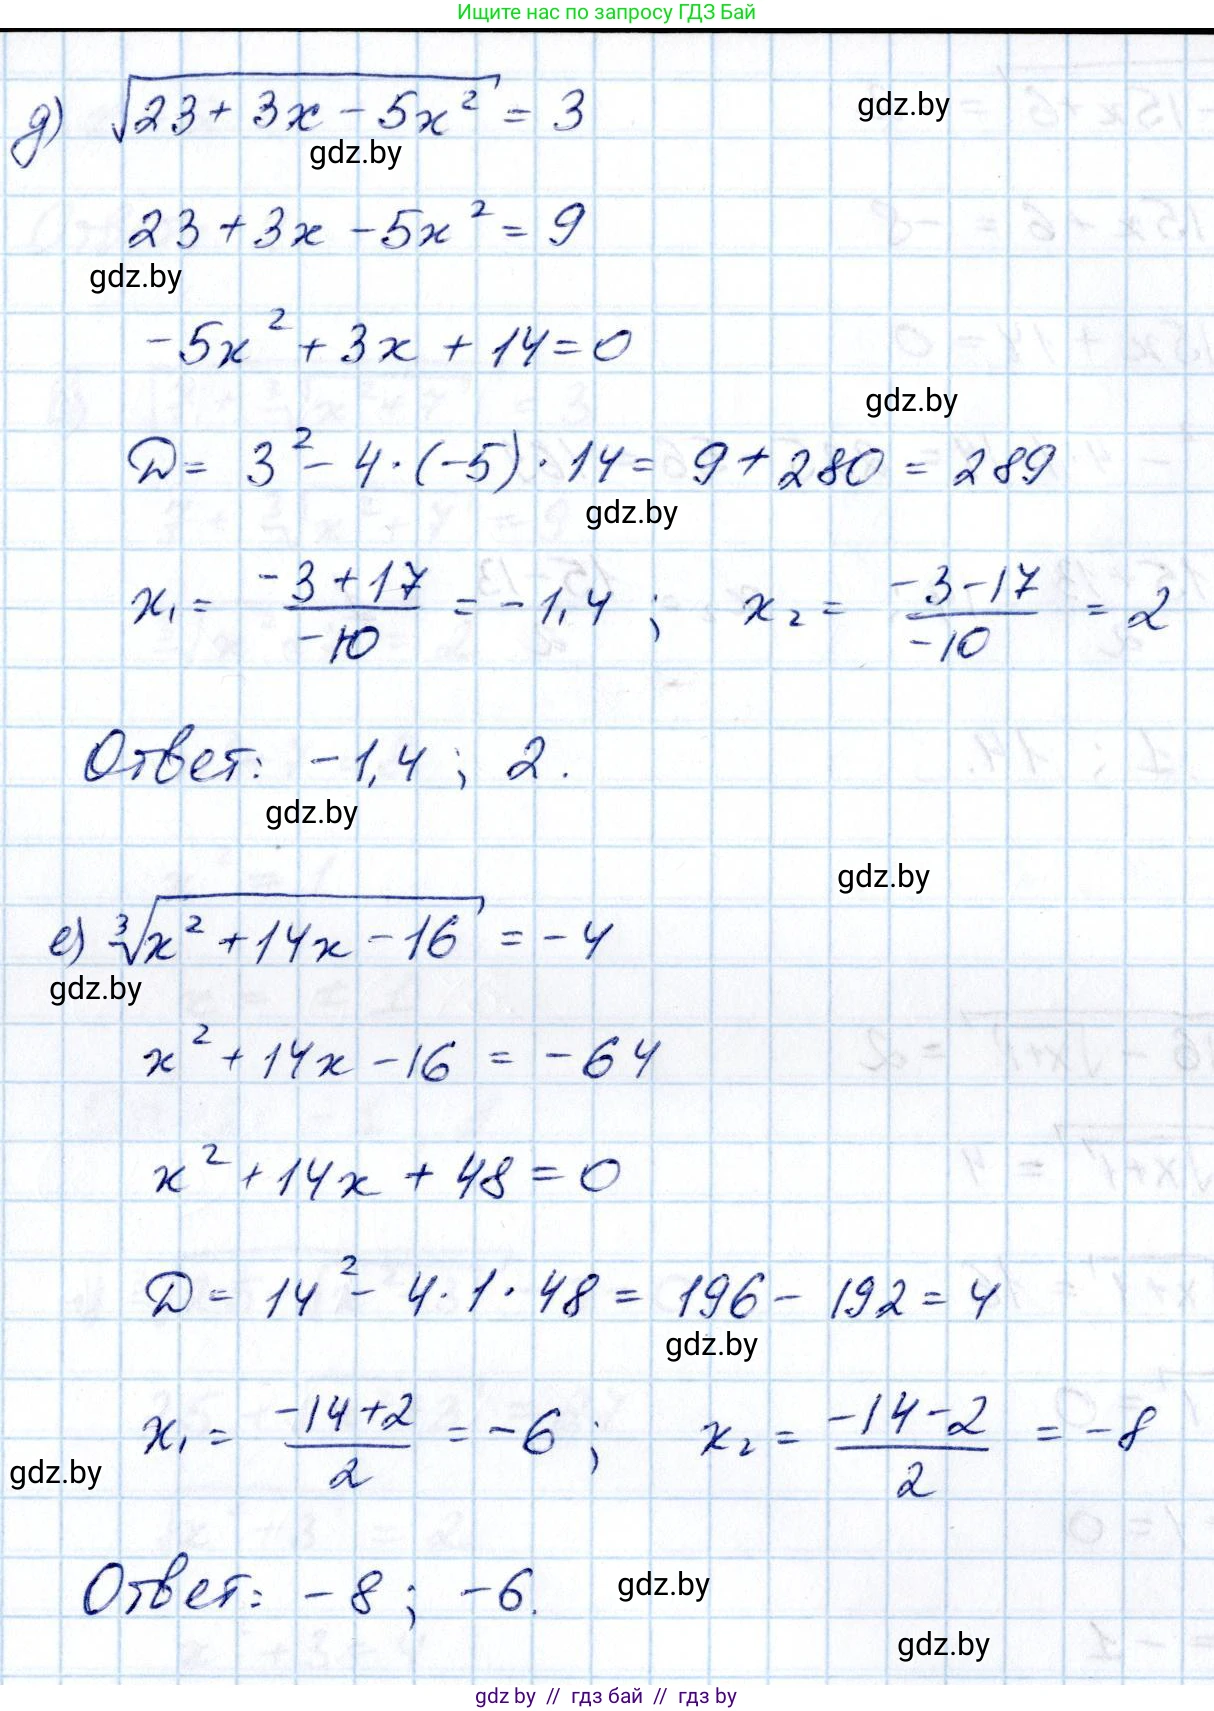 Ищите нас по запросу ГДЗ Бай
д) √(23 + 3x − 5x²) = 3
gdz.by
gdz.by
23 + 3x − 5x² = 9
gdz.by
−5x² + 3x + 14 = 0
gdz.by
D = 3² − 4 · (−5) · 14 = 9 + 280 = 289
gdz.by
x₁ = (−3 + 17)/(−10) = −1,4 ; x₂ = (−3 − 17)/(−10) = 2
Ответ: −1,4 ; 2.
gdz.by
gdz.by
е) ∛(x² + 14x − 16) = −4
gdz.by
x² + 14x − 16 = −64
x² + 14x + 48 = 0
D = 14² − 4 · 1 · 48 = 196 − 192 = 4
gdz.by
x₁ = (−14 + 2)/2 = −6 ; x₂ = (−14 − 2)/2 = −8
gdz.by
Ответ: −8 ; −6.
gdz.by
gdz.by
gdz by // гдз бай // гдз by